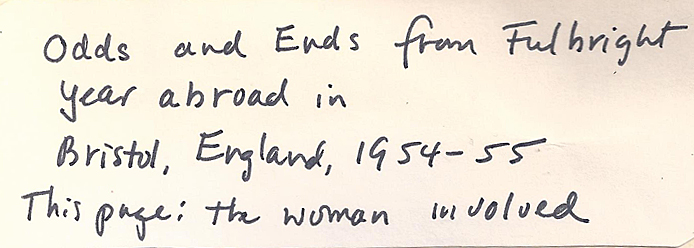 Odds and Ends from Fulbright
year abroad in
Bristol, England, 1954-55
This page: the woman involved